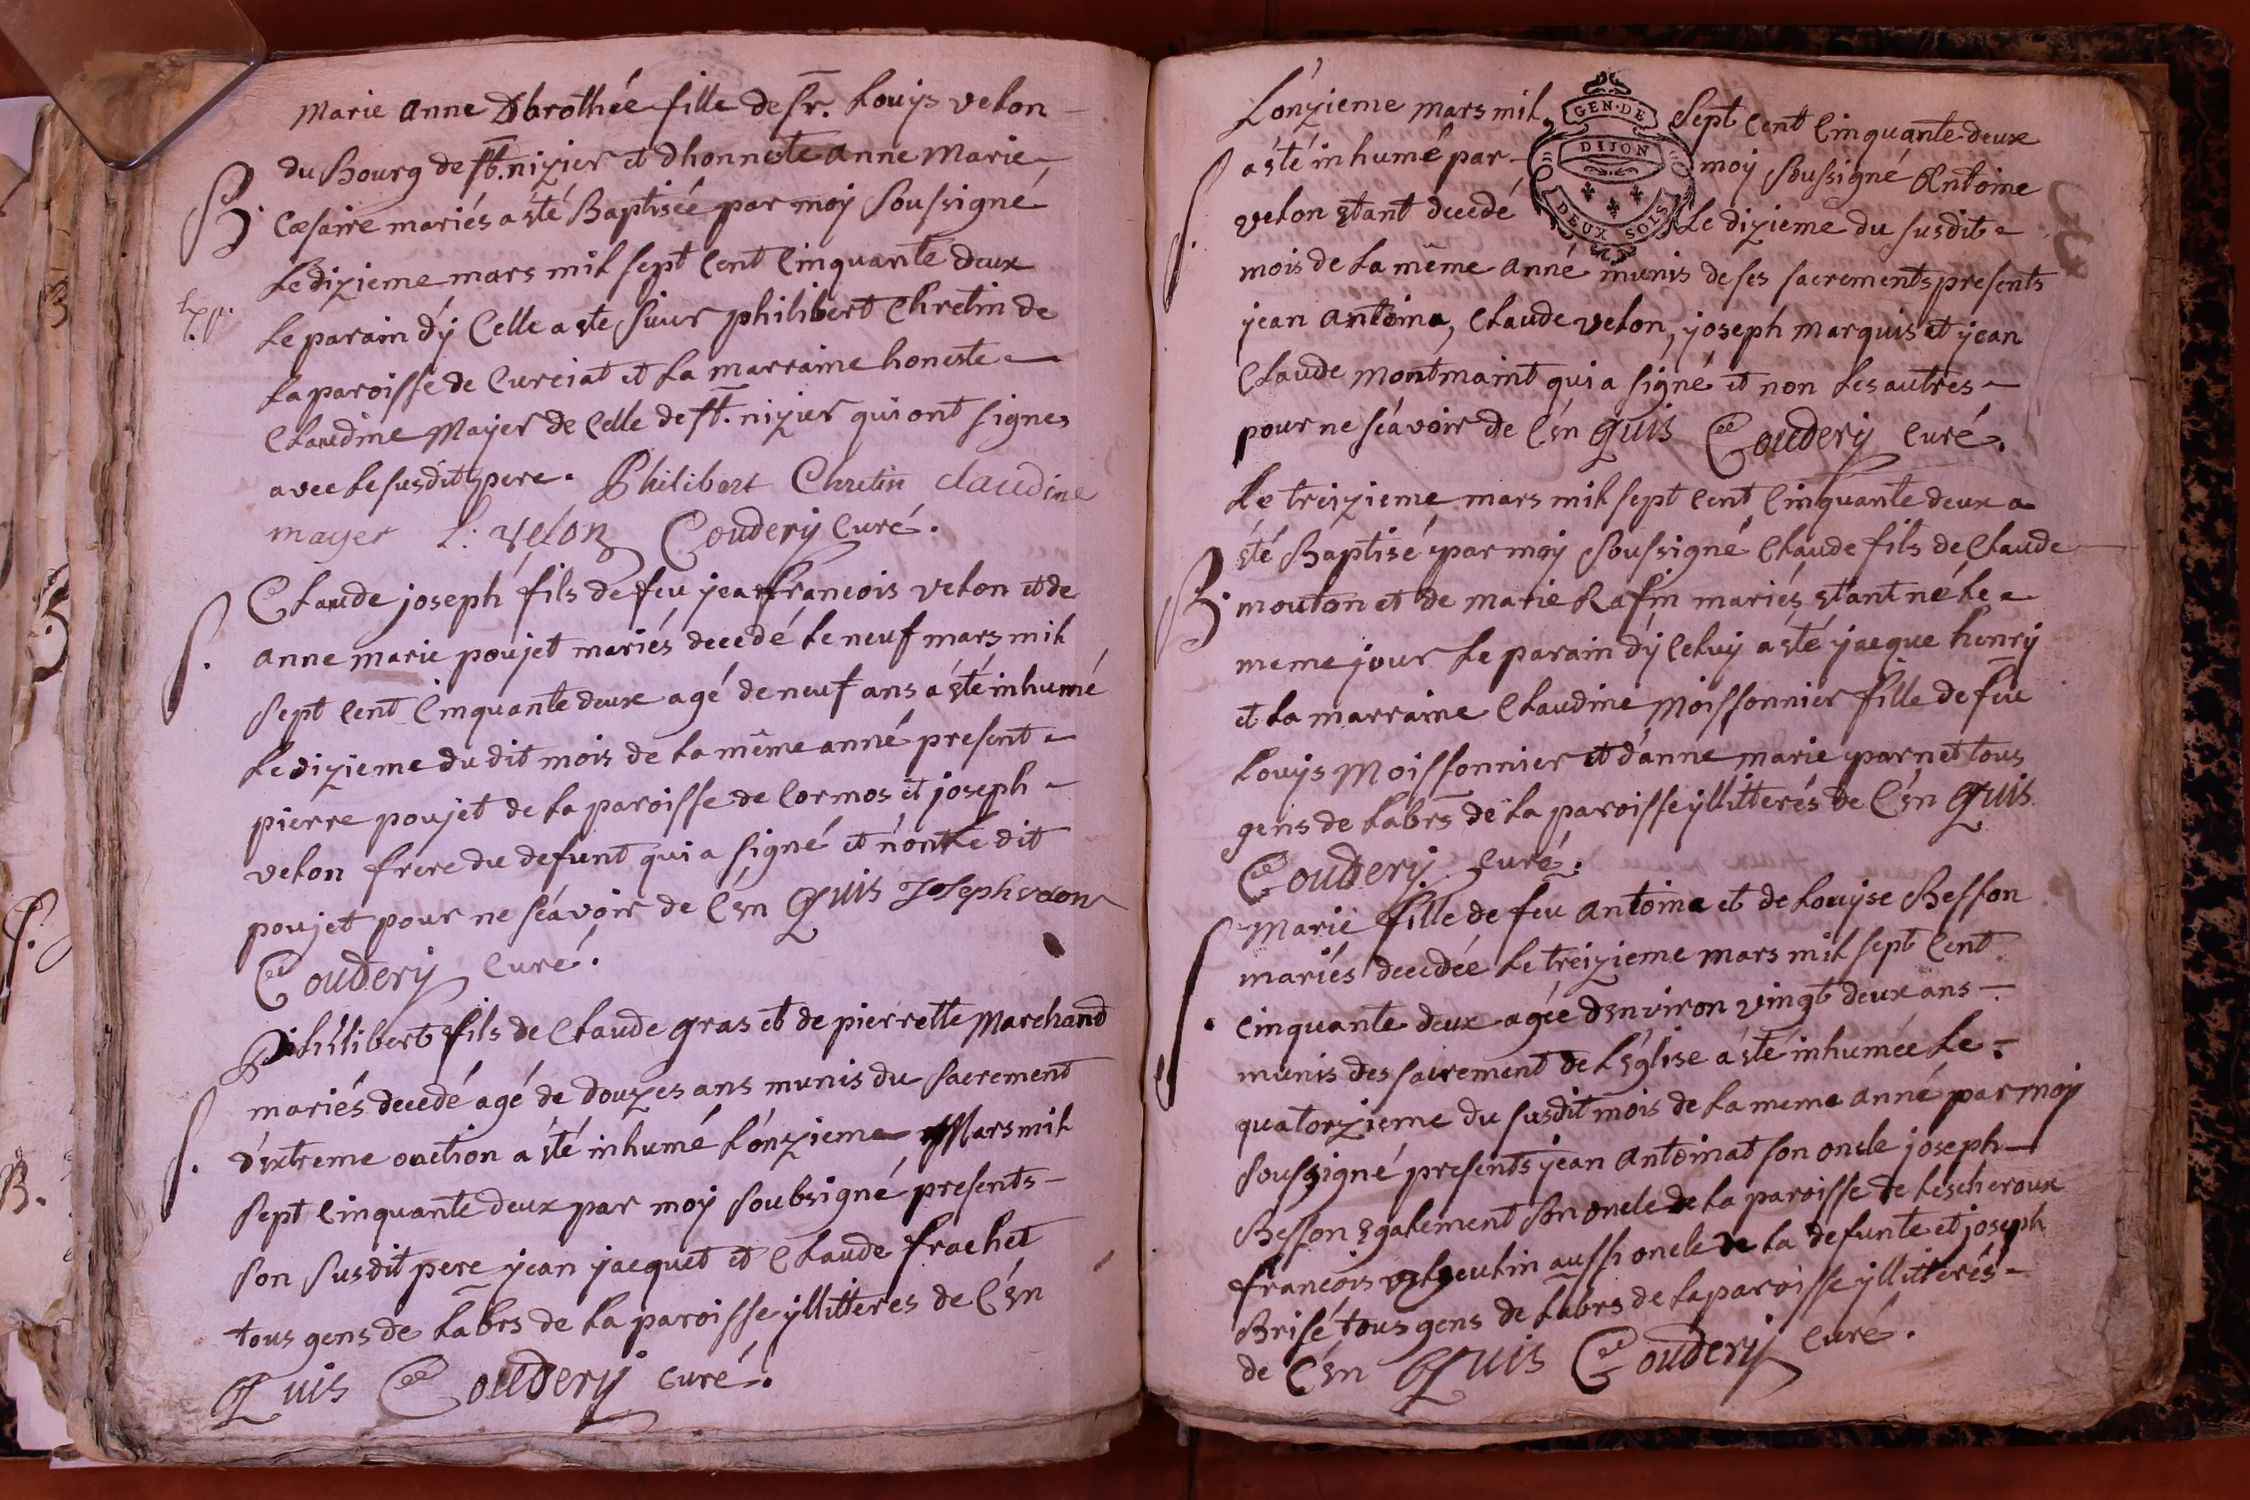 Marie Anne Dorothée fille de sr. Louys velon
du Bourg de st. nizier et dhonneste Anne Marie
B.
Cæsaire mariés a sté Baptisée par moy soussigné
Le dizieme mars mil sept cent cinquante deux
Exp.
Le parain d'y celle a ste sieur philibert Chretin de
La paroisse de Curciat et La marraine honeste
Claudine Mayer de celle de st. nizier qui ont signes
avec le susdit pere. Philibert Chretin claudine
mayer L: velon Coudery curé.
Claude joseph fils de feu jean francois velon et de
S.
anne marie poujet mariés decedé Le neuf mars mil
sept cent cinquante deux agé de neuf ans a sté inhumé
Le dizieme du dit mois de La même anné present
pierre poujet de La paroisse de Cormos et joseph
velon frere du defunt qui a signé et non Le dit
poujet pour ne sçavoir de C'en Quis Joseph velon
Coudery curé.
Philibert fils de Claude gras et de pierrette Marchand
S.
mariés decedé agé de douzes ans munis du sacrement
d'extreme onction a sté inhumé L'onzieme Mars mil
sept cinquante deux par moy soubsigné presents
son susdit pere jean jacquet et Claude frachet
tous gens de Labrs de La paroisse yllitteres de C'en
Quis Coudery curé.
L'onzieme mars mil sept cent cinquante deux
GEN·DE
DIJON
DEUX SOLS
S.
a sté inhumé par moy soussigné Antoine
velon stant decedé Le dizieme du susdit
mois de La même anné munis de ses sacrements presents
jean antoina, Claude velon, joseph marquis et jean
Claude montmaint qui a signé et non Les autres
pour ne sçavoir de C'en quis Coudery curé.
Le treizieme mars mil sept cent cinquante deux a
sté Baptisé par moy soussigné Claude fils de Claude
B.
mouton et de marie Rafin mariés stant né Le
meme jour Le parain d'y celuy a sté jacque henry
et La marraine Claudine Moissonnier fille de feu
Louys Moissonnier et d'anne marie parnet tous
gens de Labrs de La paroisse yllitterés de C'en Quis
Coudery curé.
Marie fille de feu antoina et de Louyse Besson
S.
mariés decedée Le treizieme mars mil sept cent
cinquante deux agée d'environ vingt deux ans
munis des sacrement de L'Eglise a sté inhumée Le
quatorzieme du susdit mois de La meme anné par moy
soussigné presents jean antoinat son oncle joseph
Besson Egalement son oncle de La paroisse de Lescheroux
francois aussi oncle de La defunte et joseph
Brisé tous gens de Labrs de La paroisse yllitterés
de C'en Quis Coudery curé.